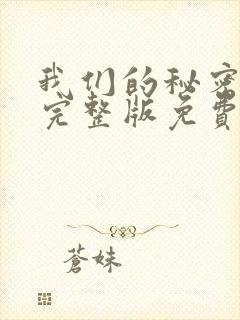 我们的秘密
完整版免費
蒼妹